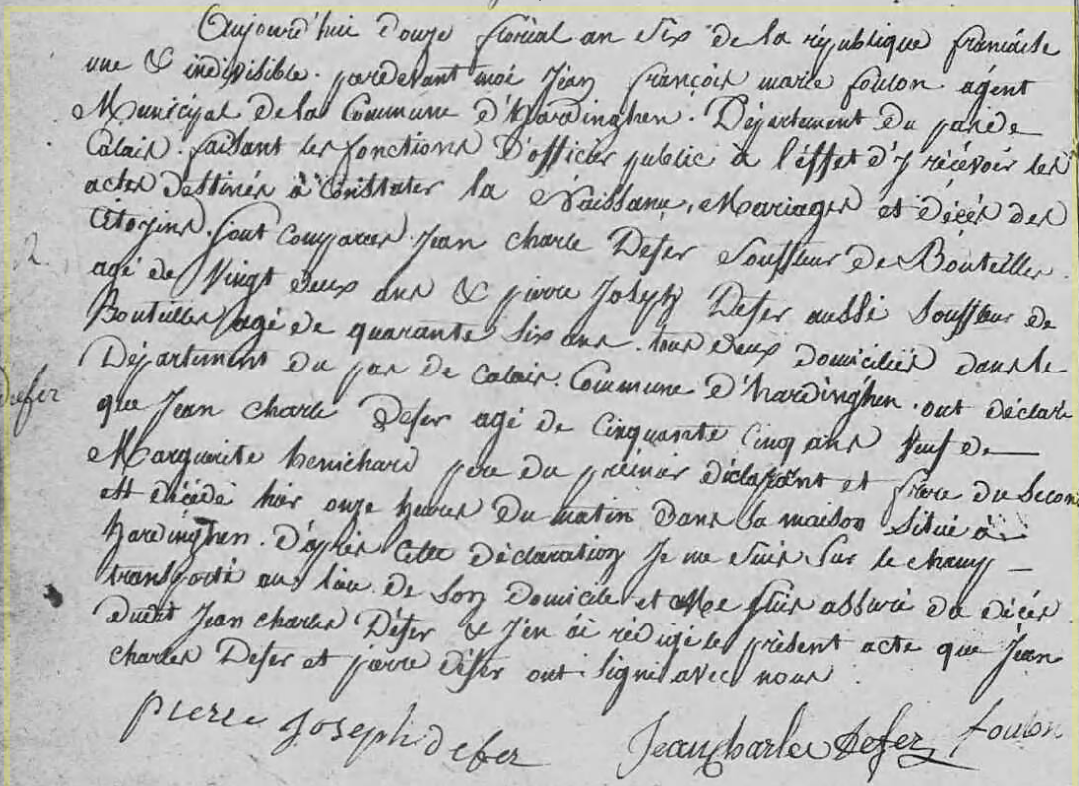 Aujourd'hui douze floréal an Six de la république francaise
une & indivisible. pardevant moi Jean françois marie foulon agent
Municipal de la Commune d'Hardinghen. Département du pas de
Calais. faisant les fonctions D'officier public à l'éffet d'y récévoir les
actes destinés à Constater la Naissance, Mariages et décès des
Citoyens. sont comparus Jean charle Defer Souffleur de Bouteilles
2
agé de Vingt deux ans & pierre Joseph Defer aussi Souffleur de
Bouteilles agé de quarante Six ans. tous deux domiciliés dans le
Département du pas de Calais. Commune d'hardinghen. ont déclaré
defer
que Jean charle Defer agé de Cinquante Cinq ans Veuf de
Marguerite henichard pere du prémier déclarant et frere du Second
est décédé hier onze heures du matin dans sa maison situé à
hardinghen. D'après cette déclaration Je me suis sur le champ
transporté au lieu de son domicile et Me suis assuré du décès
dudit Jean charles Défer & J'en ai rédigé le présent acte que Jean
charles Defer et pierre défer ont signé avec nous.
pierre Joseph defer Jean charle Defer foulon